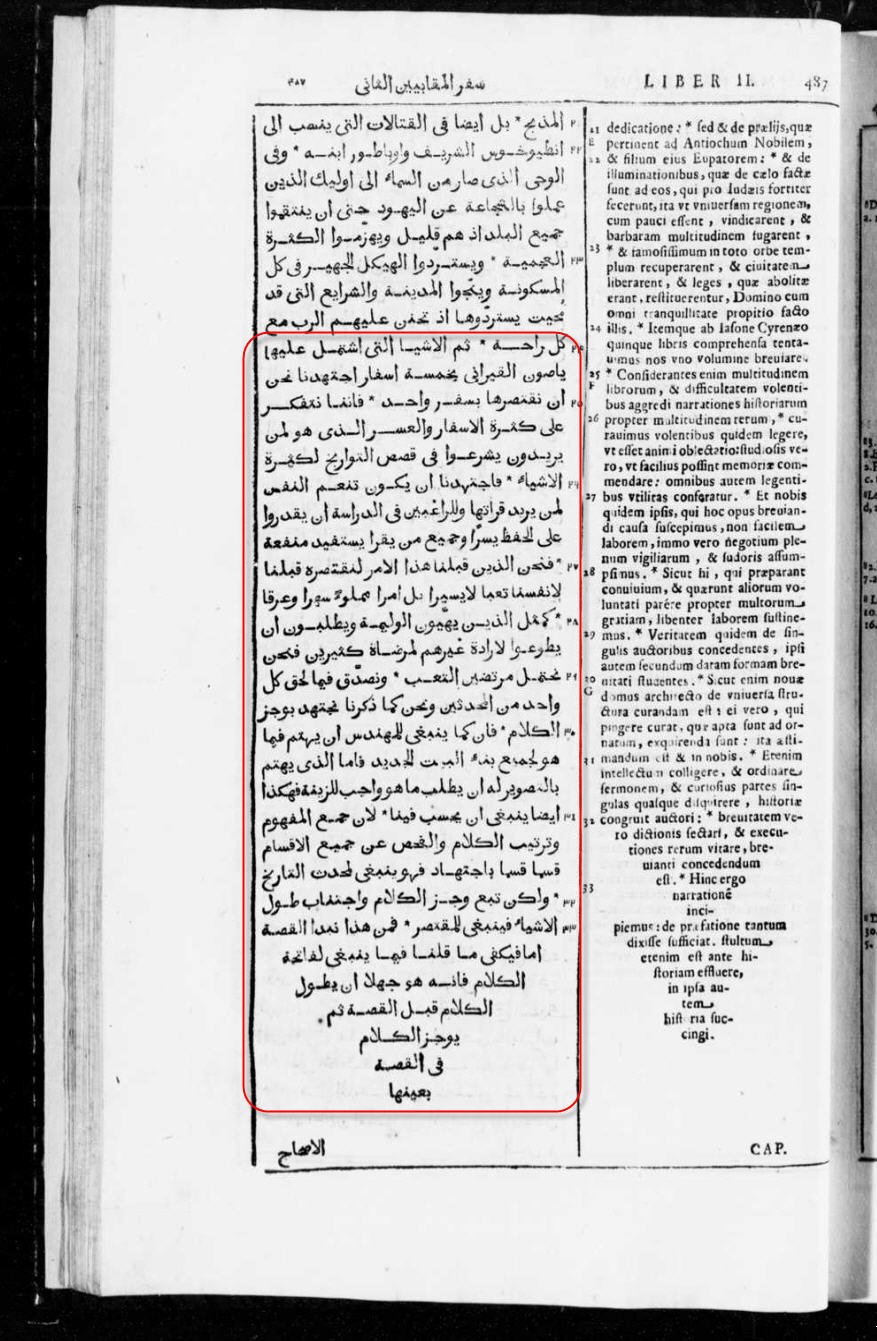 ٤٨٧ سفر المقابيين الثانى
المذبح * بل ايضا فى القتالات التى ينصب الى ٢١
انطيوخوس الشريف واوباطور ابنه * وفى ٢٢
الوحى الذى صار من السماء الى اوليك الذين
عملوا بالشجاعة عن اليهود حتى ان ينتقموا
جميع البلد اذ هم قليل ويهزموا الكثرة
العجمية * ويستردوا الهيكل الجهير فى كل ٢٣
المسكونة وينجوا المدينة والشرايع التى قد
محيت يستردوها اذ تحنن عليهم الرب مع
كل راحة * ثم الاشيا التى اشتمل عليها ٢٤
ياصون القيرانى بخمسة اسفار اجتهدنا نحن
ان نقتصرها بسفر واحد * فاننا نتفكر ٢٥
على كثرة الاسفار والعسر الذى هو لمن
يريدون يشرعوا فى قصص التواريخ لكثرة
الاشياء * فاجتهدنا ان يكون تنعم النفس ٢٦
لمن يريد قراتها وللراغبين فى الدراسة ان يقدروا
على الحفظ يسرًا وجميع من يقرا يستفيد منفعة
* فنحن الذين قبلنا هذا الامر لنقتصره قبلنا ٢٧
لانفسنا تعبا لايسيرا بل امرا مملوءً سهرا وعرقا
* كمثل الذين يهيّون الوليمة ويطلبون ان ٢٨
يطوعوا لارادة غيرهم لمرضاة كثيرين فنحن
نحتمل مرتضين التعب * ونصدّق فيها لحق كل ٢٩
واحد من المحدثين ونحن كما ذكرنا نجتهد بوجز
الكلام * فان كما ينبغى للمهندس ان يهتم فيما ٣٠
هو لجميع بناء البيت الجديد فاما الذى يهتم
بالتصوير له ان يطلب ما هو واجب للزينة فهكذا
ايضا ينبغى ان يحسب فينا * لان جمع المفهوم ٣١
وترتيب الكلام والفحص عن جميع الاقسام
قسما قسما باجتهاد فهو ينبغى لمحدث التاريخ
* ولكن تبع وجز الكلام واجتناب طول ٣٢
الاشياء فينبغى للمقتصر * فمن هذا نبدا القصة ٣٣
اما فيكفى ما قلنا فيما ينبغى لفاتحة
الكلام فانه هو جهلا ان يطول
الكلام قبل القصة ثم
يوجز الكلام
فى القصة
بعينها
الاصحاح
LIBER II. 487
21 dedicatione: * sed & de prælijs, quæ
E pertinent ad Antiochum Nobilem,
22 & filium eius Eupatorem: * & de
illuminationibus, quæ de cælo factæ
sunt ad eos, qui pro Iudæis fortiter
fecerunt, ita vt vniuersam regionem,
cum pauci essent, vindicarent, &
barbaram multitudinem fugarent,
23 * & famosissimum in toto orbe tem-
plum recuperarent, & ciuitatem
liberarent, & leges, quæ abolitæ
erant, restituerentur, Domino cum
omni tranquillitate propitio facto
24 illis. * Itemque ab Iasone Cyrenæo
quinque libris comprehensa tenta-
uimus nos vno volumine breuiare.
25 * Considerantes enim multitudinem
F librorum, & difficultatem volenti-
bus aggredi narrationes historiarum
26 propter multitudinem rerum, * cu-
rauimus volentibus quidem legere,
vt esset animi oblectatio: studiosis ve-
ro, vt facilius possint memoriæ com-
mendare: omnibus autem legenti-
27 bus vtilitas conferatur. * Et nobis
quidem ipsis, qui hoc opus breuian-
di causa suscepimus, non facilem
laborem, immo vero negotium ple-
num vigiliarum, & sudoris assum-
28 psimus. * Sicut hi, qui præparant
conuiuium, & quærunt aliorum vo-
luntati parere propter multorum
gratiam, libenter laborem sustine-
29 mus. * Veritatem quidem de sin-
gulis auctoribus concedentes, ipsi
autem secundum datam formam bre-
30 uitati studentes. * Sicut enim nouæ
G domus architecto de vniuersa stru-
ctura curandum est: ei vero, qui
pingere curat, quæ apta sunt ad or-
natum, exquirenda sunt: ita æsti-
31 mandum est & in nobis. * Etenim
intellectum colligere, & ordinare
sermonem, & curiosius partes sin-
gulas quasque disquirere, historiæ
32 congruit auctori: * breuitatem ve-
ro dictionis sectari, & execu-
tiones rerum vitare, bre-
uianti concedendum
33 est. * Hinc ergo
narrationē
inci-
piemus: de præfatione tantum
dixisse sufficiat. stultum
etenim est ante hi-
storiam effluere,
in ipsa au-
tem
historia suc-
cingi.
CAP.